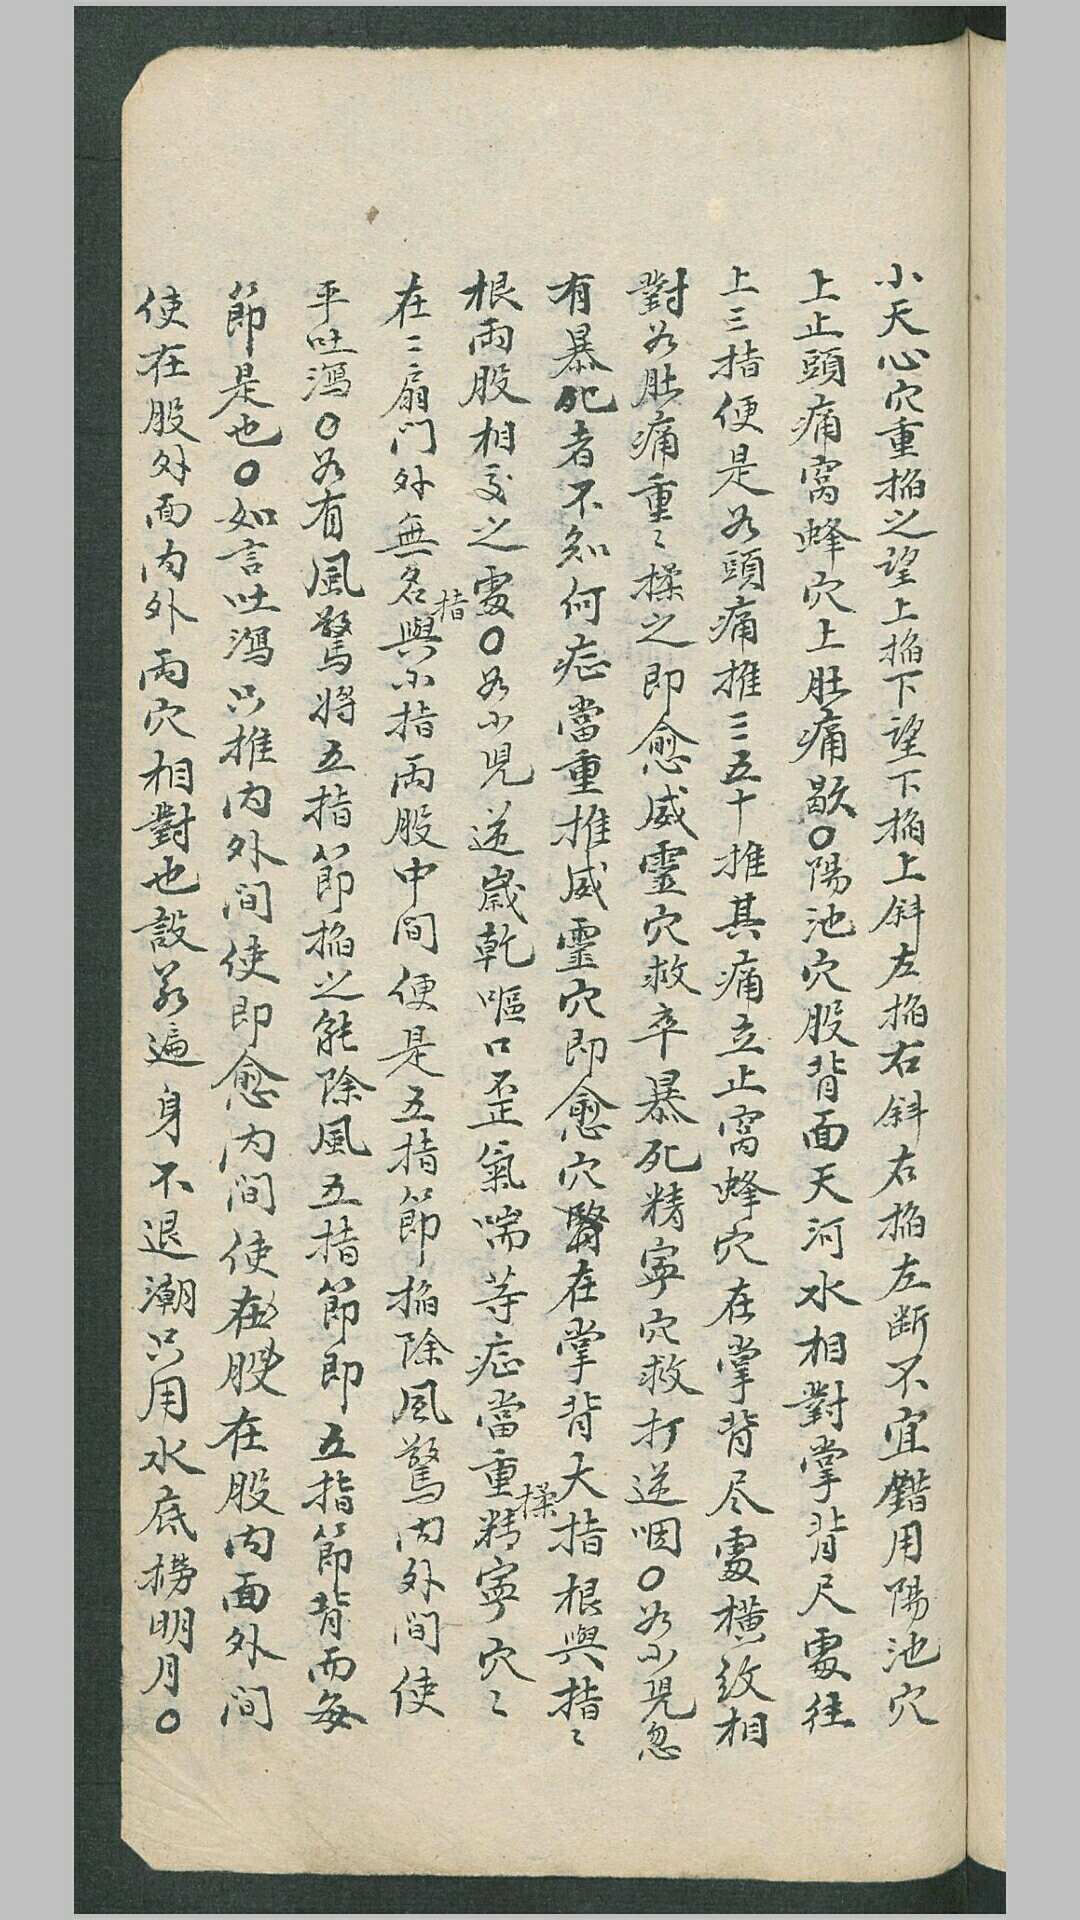 小天心穴重掐之望上掐下望下掐上斜左掐右斜右掐左断不宜錯用陽池穴
上止頭痛窩蜂穴上肚痛歇〇陽池穴股背面天河水相對掌背尺處往
上三指便是若頭痛推三五十推其痛立止窩蜂穴在掌背尽處横紋相
對若肚痛重〻揉之即愈威靈穴救卒暴死精寧穴救打逆咽〇若小児忽
有暴死者不知何症當重推威靈穴即愈穴在掌背大指根與指〻
根兩股相交之處〇若小児逆歲乾嘔口歪氣喘等症當重揉精寧穴〻
在二扇門外無名指與小指兩股中間便是五指節掐除風驚内外間使
平吐瀉〇若有風驚將五指節掐之能除風五指節即五指節背而每
節是也〇如言吐瀉只推内外間使即愈内間使在股在股内面外間
使在股外面内外兩穴相對也設若遍身不退潮只用水底撈明月〇